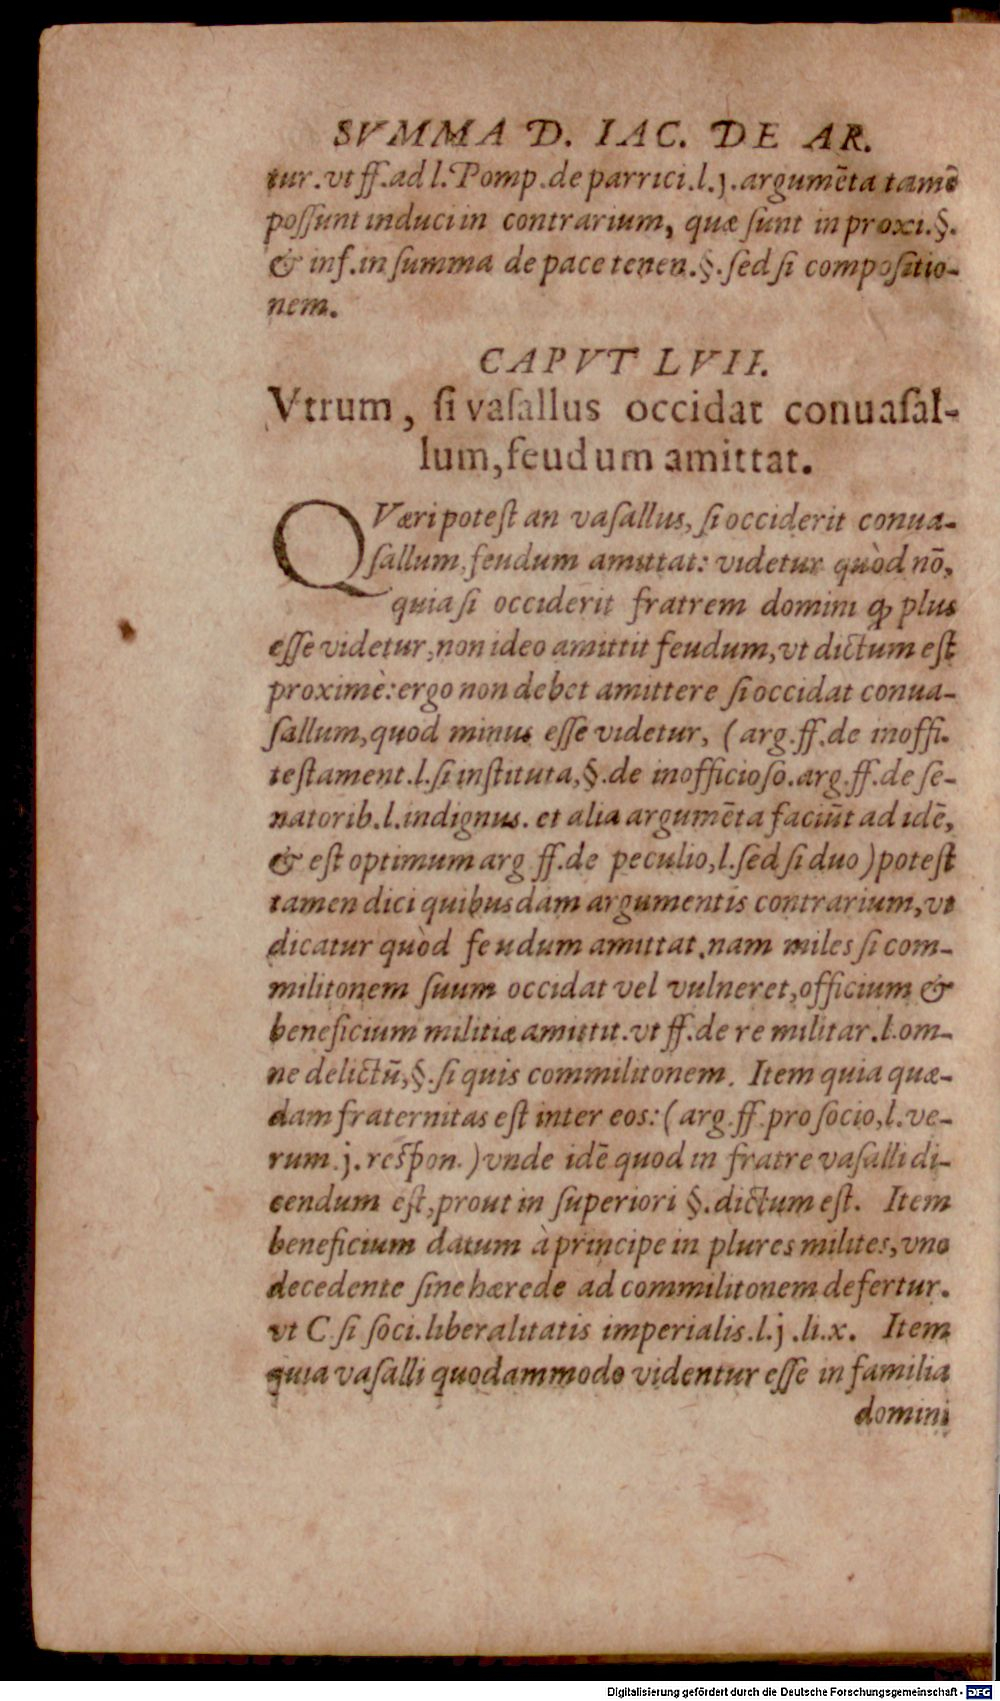 SVMMA D. IAC. DE AR.
tur.vt ff.ad l.Pomp.de parrici.l.j.argumēta tamē
poſſunt induci in contrarium, quæ ſunt in proxi.§.
& inf.in ſumma de pace tenen.§.ſed ſi compoſitio-
nem.
CAPVT LVII.
Vtrum, ſi vaſallus occidat conuaſal-
lum,feudum amittat.
QVæri poteſt an vaſallus, ſi occiderit conua-
ſallum,feudum amittat: videtur quòd nō,
quia ſi occiderit fratrem domini ꝙ plus
eſſe videtur,non ideo amittit feudum,vt dictum eſt
proximè:ergo non debet amittere ſi occidat conua-
ſallum,quod minus eſſe videtur, (arg.ff.de inoffi.
teſtament.l.ſi inſtituta,§.de inofficioſo.arg.ff.de ſe-
natorib.l.indignus. et alia argumēta faciūt ad idē,
& eſt optimum arg ff.de peculio,l.ſed ſi duo)poteſt
tamen dici quibuſdam argumentis contrarium,vt
dicatur quòd feudum amittat.nam miles ſi com-
militonem ſuum occidat vel vulneret,officium &
beneficium militiæ amittit.vt ff.de re militar.l.om-
ne delictū,§.ſi quis commilitonem. Item quia quæ-
dam fraternitas eſt inter eos:(arg.ff.pro ſocio,l.ve-
rum.j.reſpon.)vnde idē quod in fratre vaſalli di-
cendum eſt,prout in ſuperiori §.dictum eſt. Item
beneficium datum à principe in plures milites,vno
decedente ſine hærede ad commilitonem defertur.
vt C.ſi ſoci.liberalitatis imperialis.l.j.li.x. Item
quia vaſalli quodammodo videntur eſſe in familia
domini
Digitalisierung gefördert durch die Deutsche Forschungsgemeinschaft - DFG